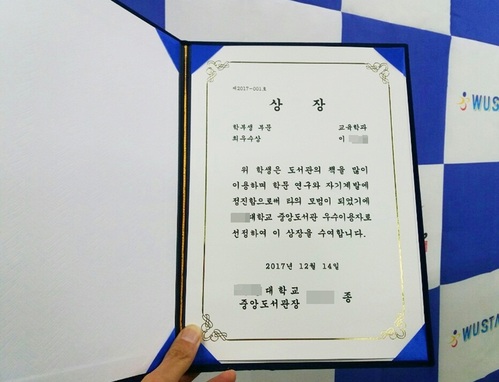 제2017-001호
상 장
학부생 부문 교육학과
최우수상 이
위 학생은 도서관의 책을 많이
이용하며 학문 연구와 자기계발에
정진함으로써 타의 모범이 되었기에
대학교 중앙도서관 우수이용자로
선정하여 이 상장을 수여합니다.
2017년 12월 14일
대학교
중앙도서관장 종
WUSTA
WUSTA